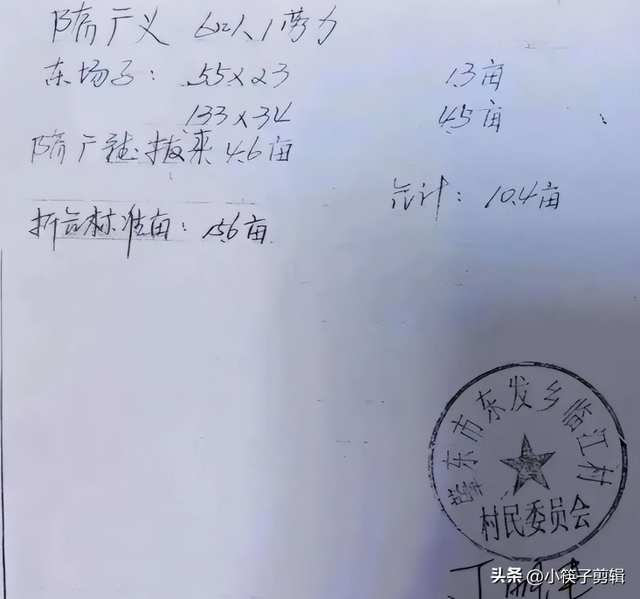 隋广义 6口人1劳力
东场子: 55×23 1.3亩
133×34 4.5亩
隋广 拨来 4.6亩
总计: 10.4亩
折合标准亩: 15.6亩
肇东市东发乡临江村
村民委员会
头条 @小筷子剪辑